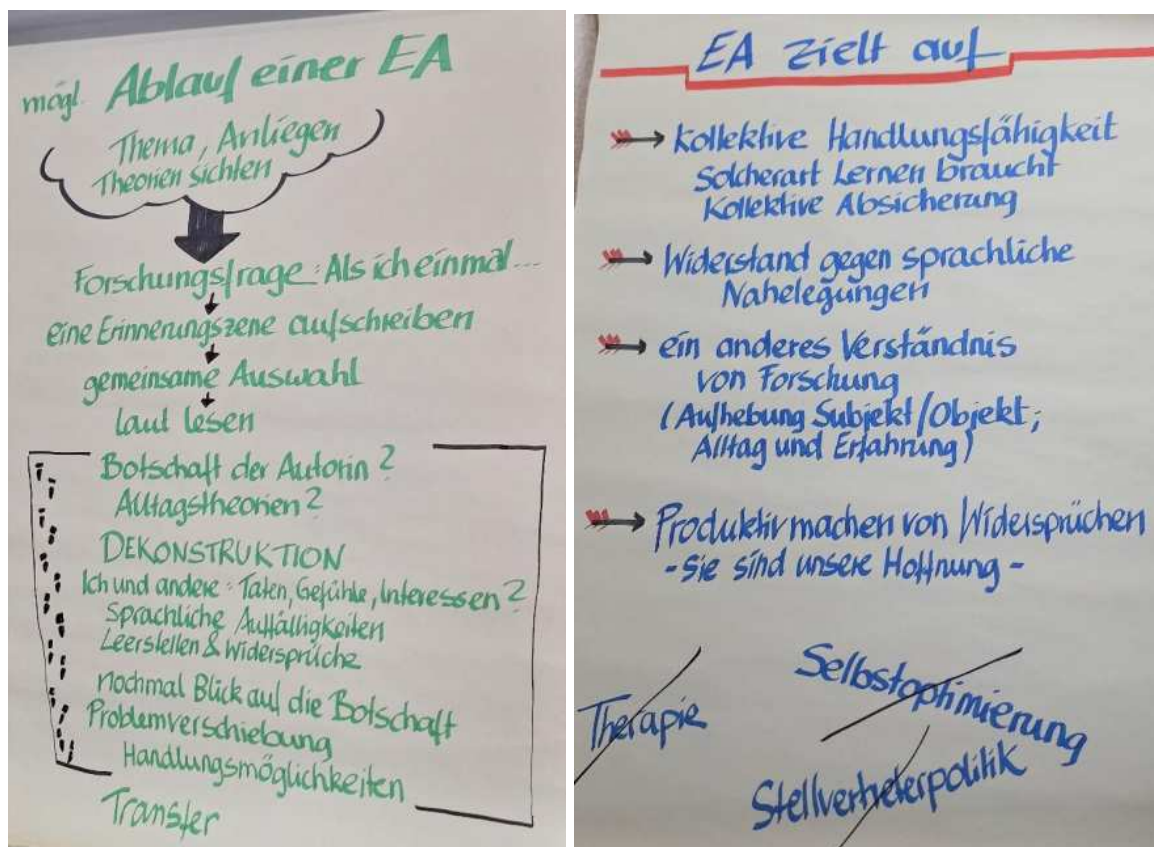 mögl. Ablauf einer EA
Thema, Anliegen
Theorien sichten
Forschungsfrage: Als ich einmal...
eine Erinnerungszene aufschreiben
gemeinsame Auswahl
laut lesen
Botschaft der Autorin?
Alltagstheorien?
DEKONSTRUKTION
Ich und andere: Taten, Gefühle, Interessen?
Sprachliche Auffälligkeiten
Leerstellen & Widersprüche
nochmal Blick auf die Botschaft
Problemverschiebung
Handlungsmöglichkeiten
Transfer
EA zielt auf
kollektive Handlungsfähigkeit
Solcherart Lernen braucht
kollektive Absicherung
Widerstand gegen sprachliche
Nahelegungen
ein anderes Verständnis
von Forschung
(Aufhebung Subjekt/Objekt;
Alltag und Erfahrung)
Produktivmachen von Widersprüchen
- Sie sind unsere Hoffnung -
Selbstoptimierung
Therapie
Stellvertreterpolitik